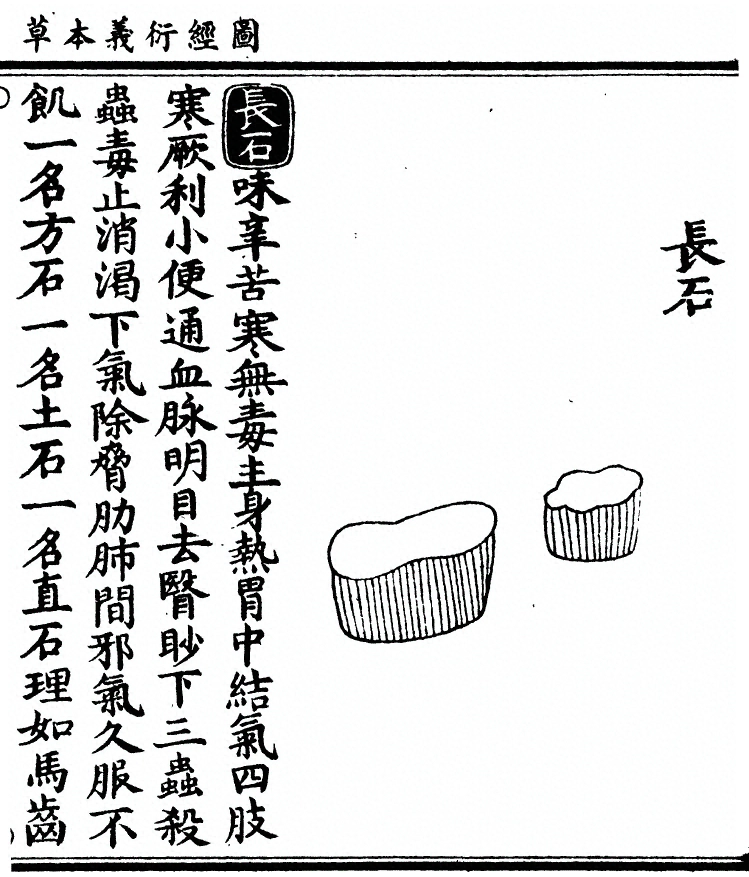 圖經衍義本草
長石
長石味辛苦寒無毒主身熱胃中結氣四肢
寒厥利小便通血脉明目去瞖眇下三蟲殺
蟲毒止消渴下氣除脅肋肺間邪氣久服不
飢一名方石一名土石一名直石理如馬齒